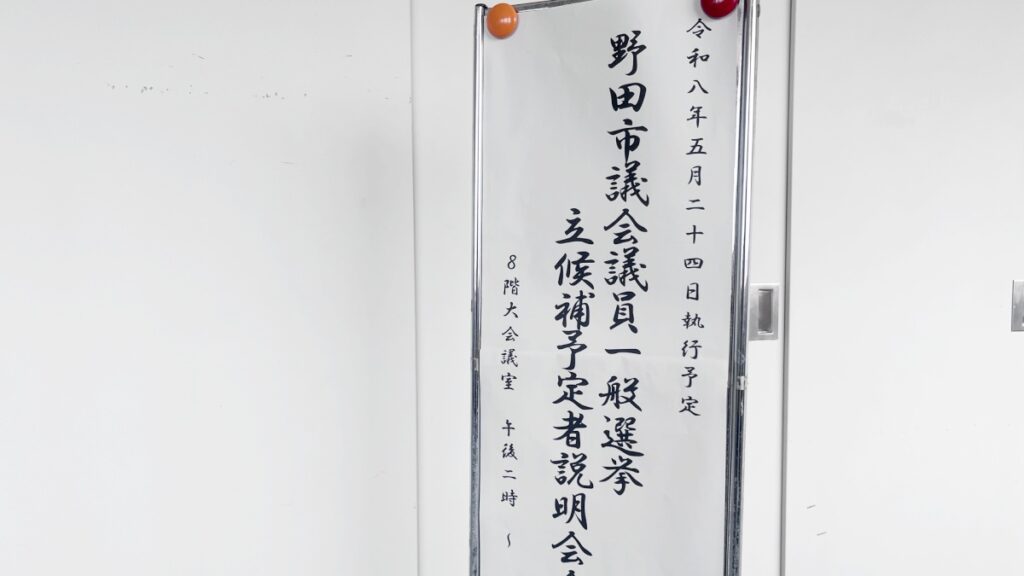 令和八年五月二十四日執行予定
野田市議会議員一般選挙
立候補予定者説明会
8階大会議室 午後二時 〜